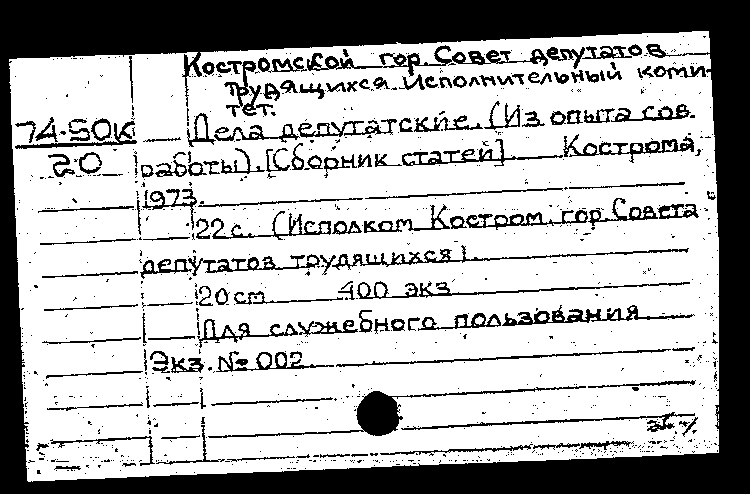 Костромской гор. Совет депутатов
трудящихся. Исполнительный коми-
тет.
74-50к
20
Дела депутатские. (Из опыта сов.
работы). [Сборник статей]. Кострома,
1973.
22 с. (Исполком Костром. гор. Совета
депутатов трудящихся).
20 см 400 экз
Для служебного пользования.
Экз. № 002.